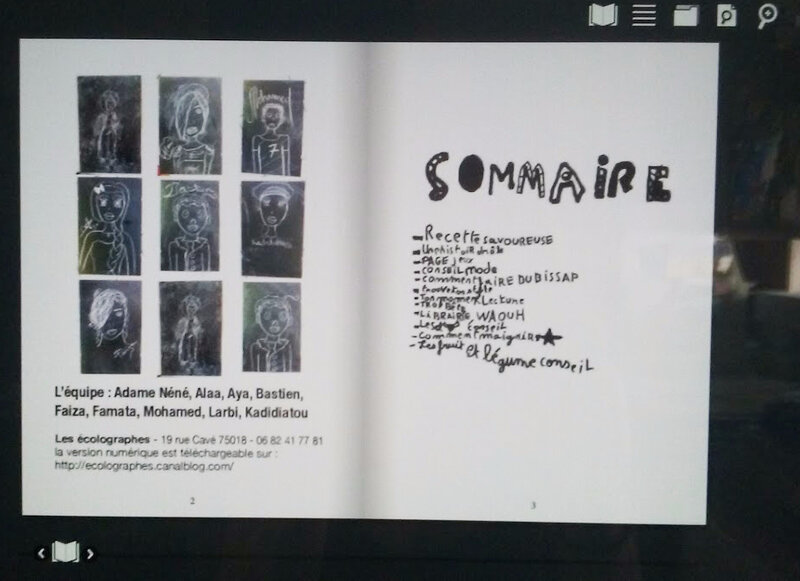 Mohamed
7
L'équipe : Adame Néné, Alaa, Aya, Bastien,
Faiza, Famata, Mohamed, Larbi, Kadidiatou
Les écolographes - 19 rue Cavé 75018 - 06 82 41 77 81
la version numérique est téléchargeable sur :
http://ecolographes.canalblog.com/
2
SOMMAIRE
- Recette SAVOUREUSE
- Une histoire drôle
- PAGE jeux
- CONSEIL mode
- COMMENT FAIRE DU BISSAP
- Ton moment Lecture
- LIBRAIRIE WAOUH
- Les conseil
- Comment maigrir
- Les fruit et légume conseil
3